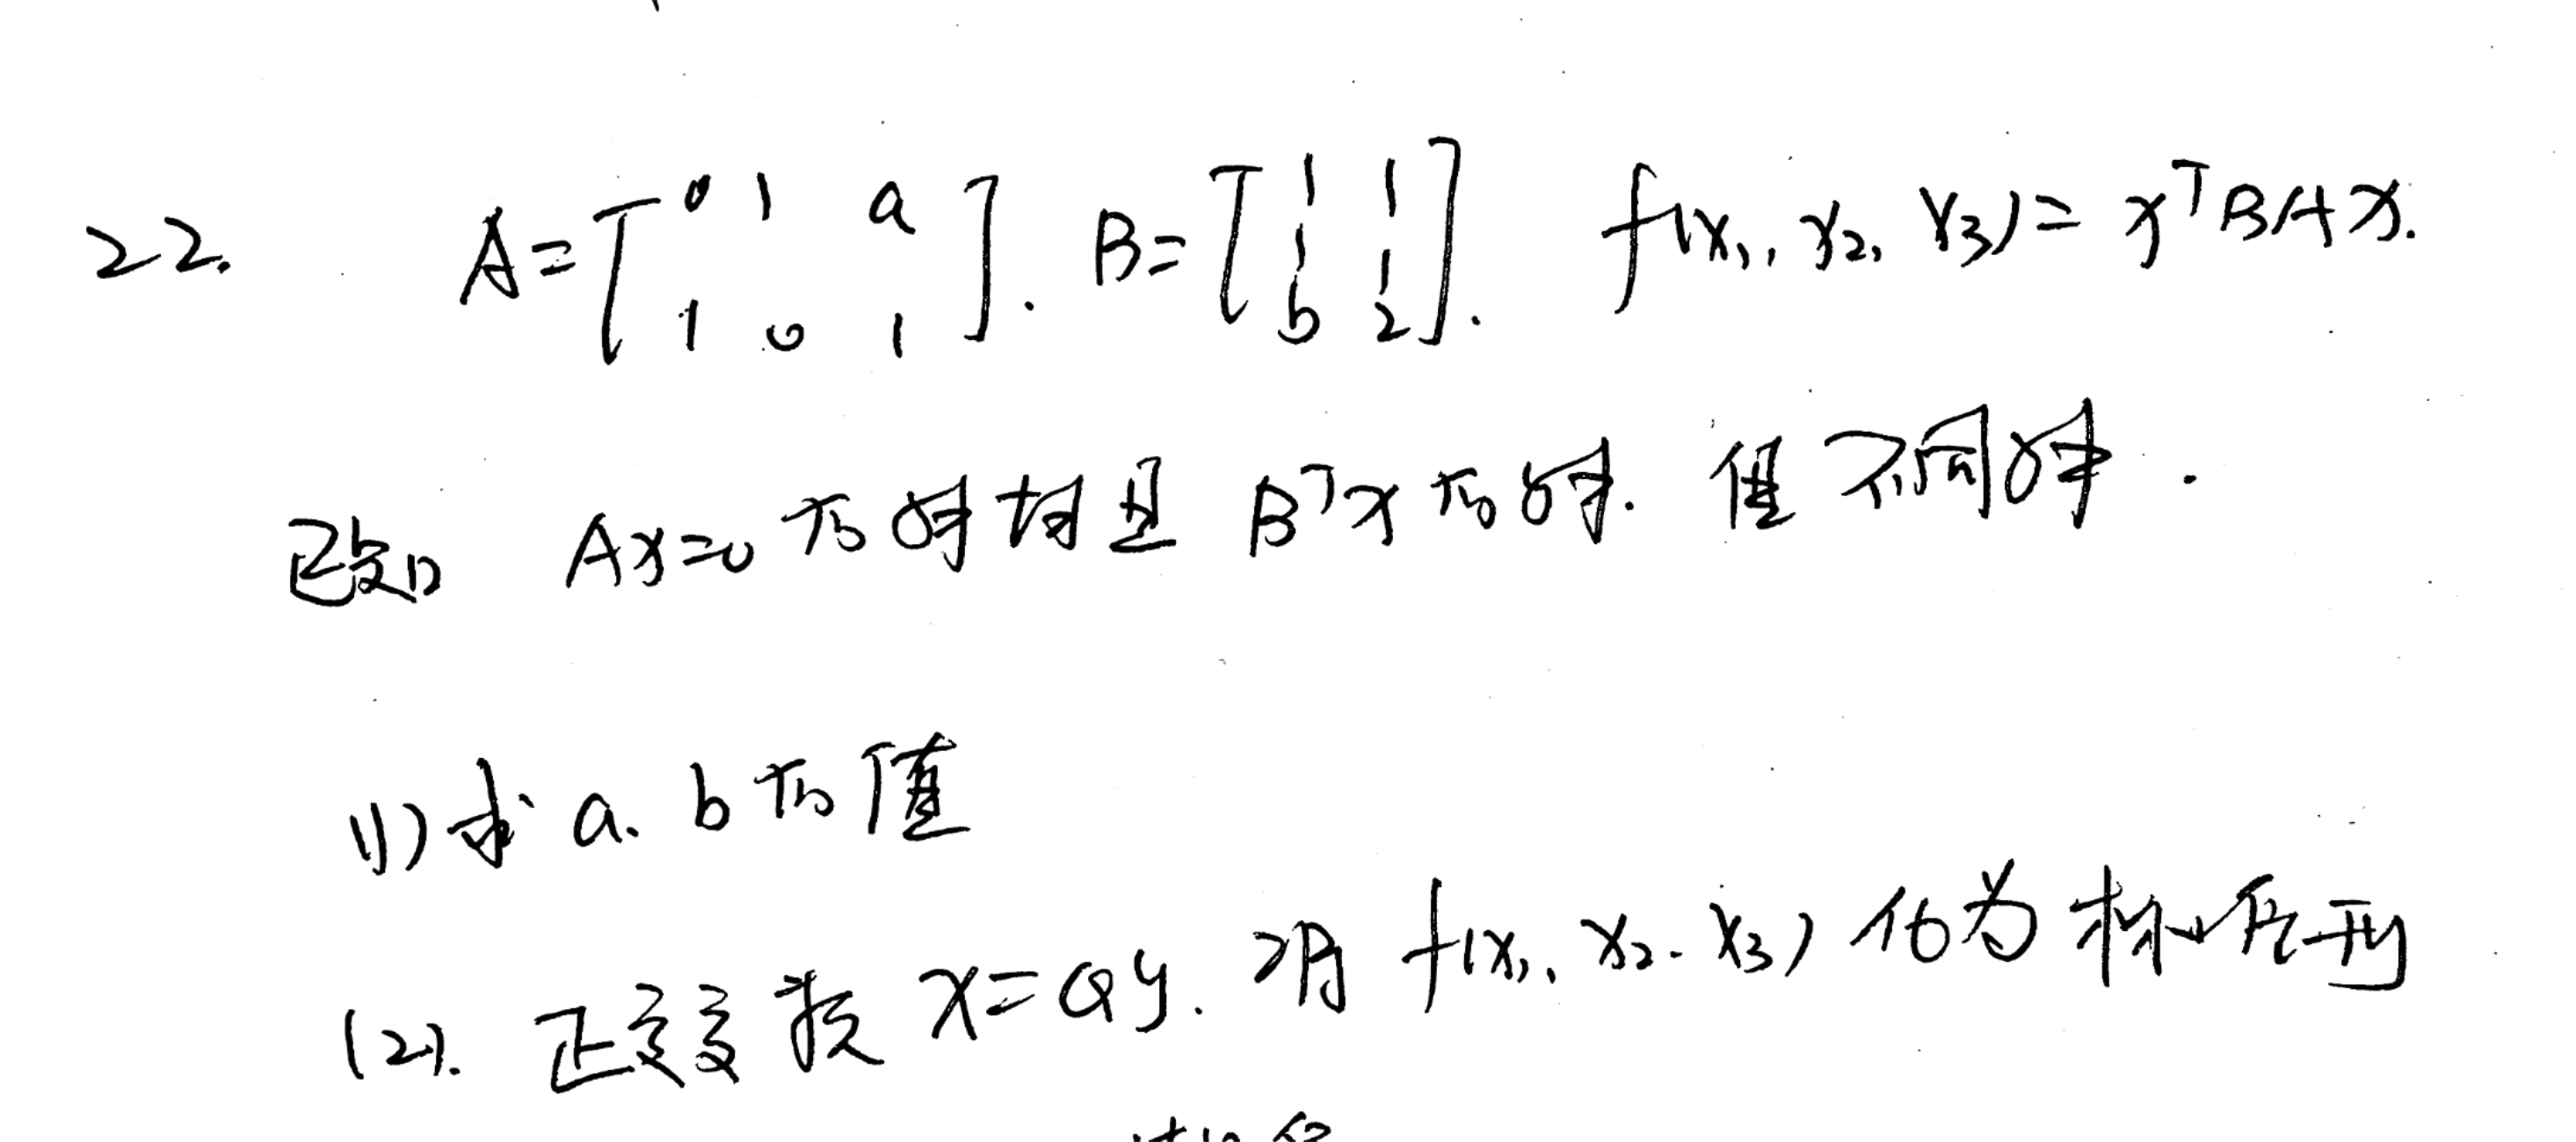 22. A=[0 1 a 1 0 1]. B=[1 1 1 1 b 2]. f(x₁, x₂, x₃)= xᵀBAx.
已知 Ax=0 的解均是 Bᵀx 的解. 但不同解.
(1) 求 a. b 的值
(2). 正交变换 x=Qy. 将 f(x₁, x₂. x₃) 化为标准型